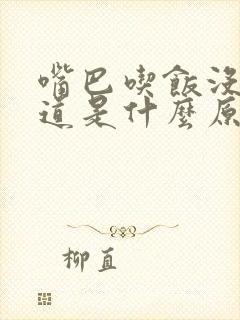 嘴巴喫飯沒
道是什麼原
柳直